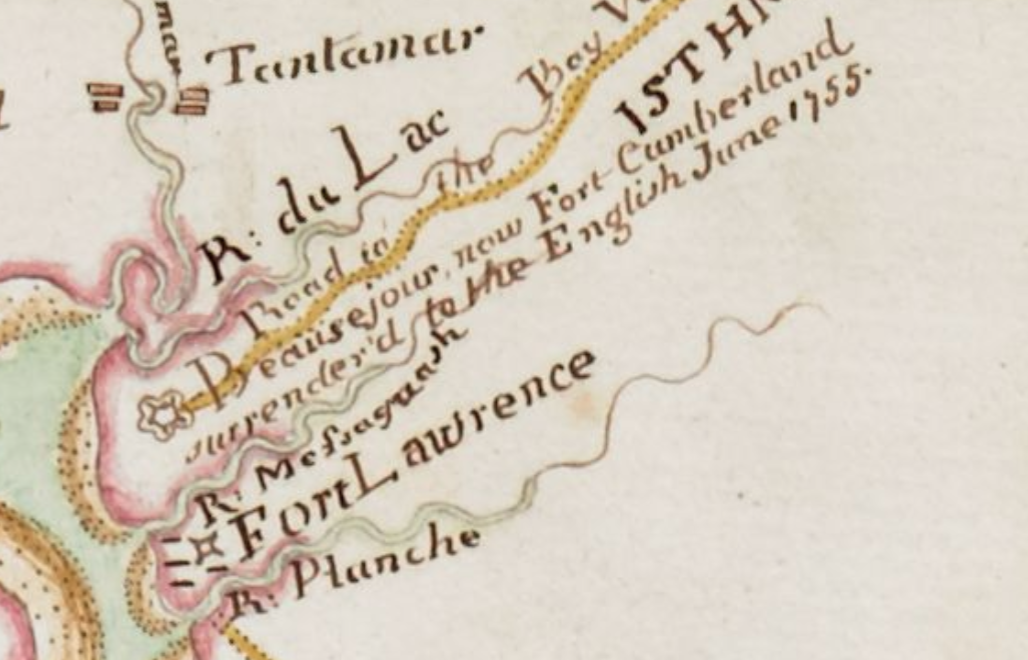 mar
Tantamar
R: du Lac
Road to the Bay
ISTH
Beausejour, now Fort Cumberland
surrender'd to the English June 1755.
R: Messaguash
Fort Lawrence
R: Planche